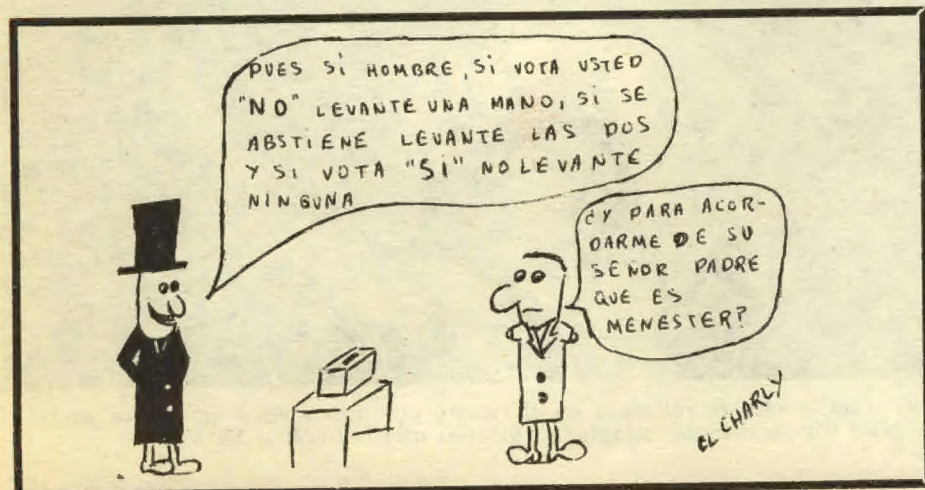 PUES SI HOMBRE, SI VOTA USTED
"NO" LEVANTE UNA MANO, SI SE
ABSTIENE LEVANTE LAS DOS
Y SI VOTA "SI" NO LEVANTE
NINGUNA
¿Y PARA ACOR-
DARME DE SU
SEÑOR PADRE
QUE ES
MENESTER?
EL CHARLY